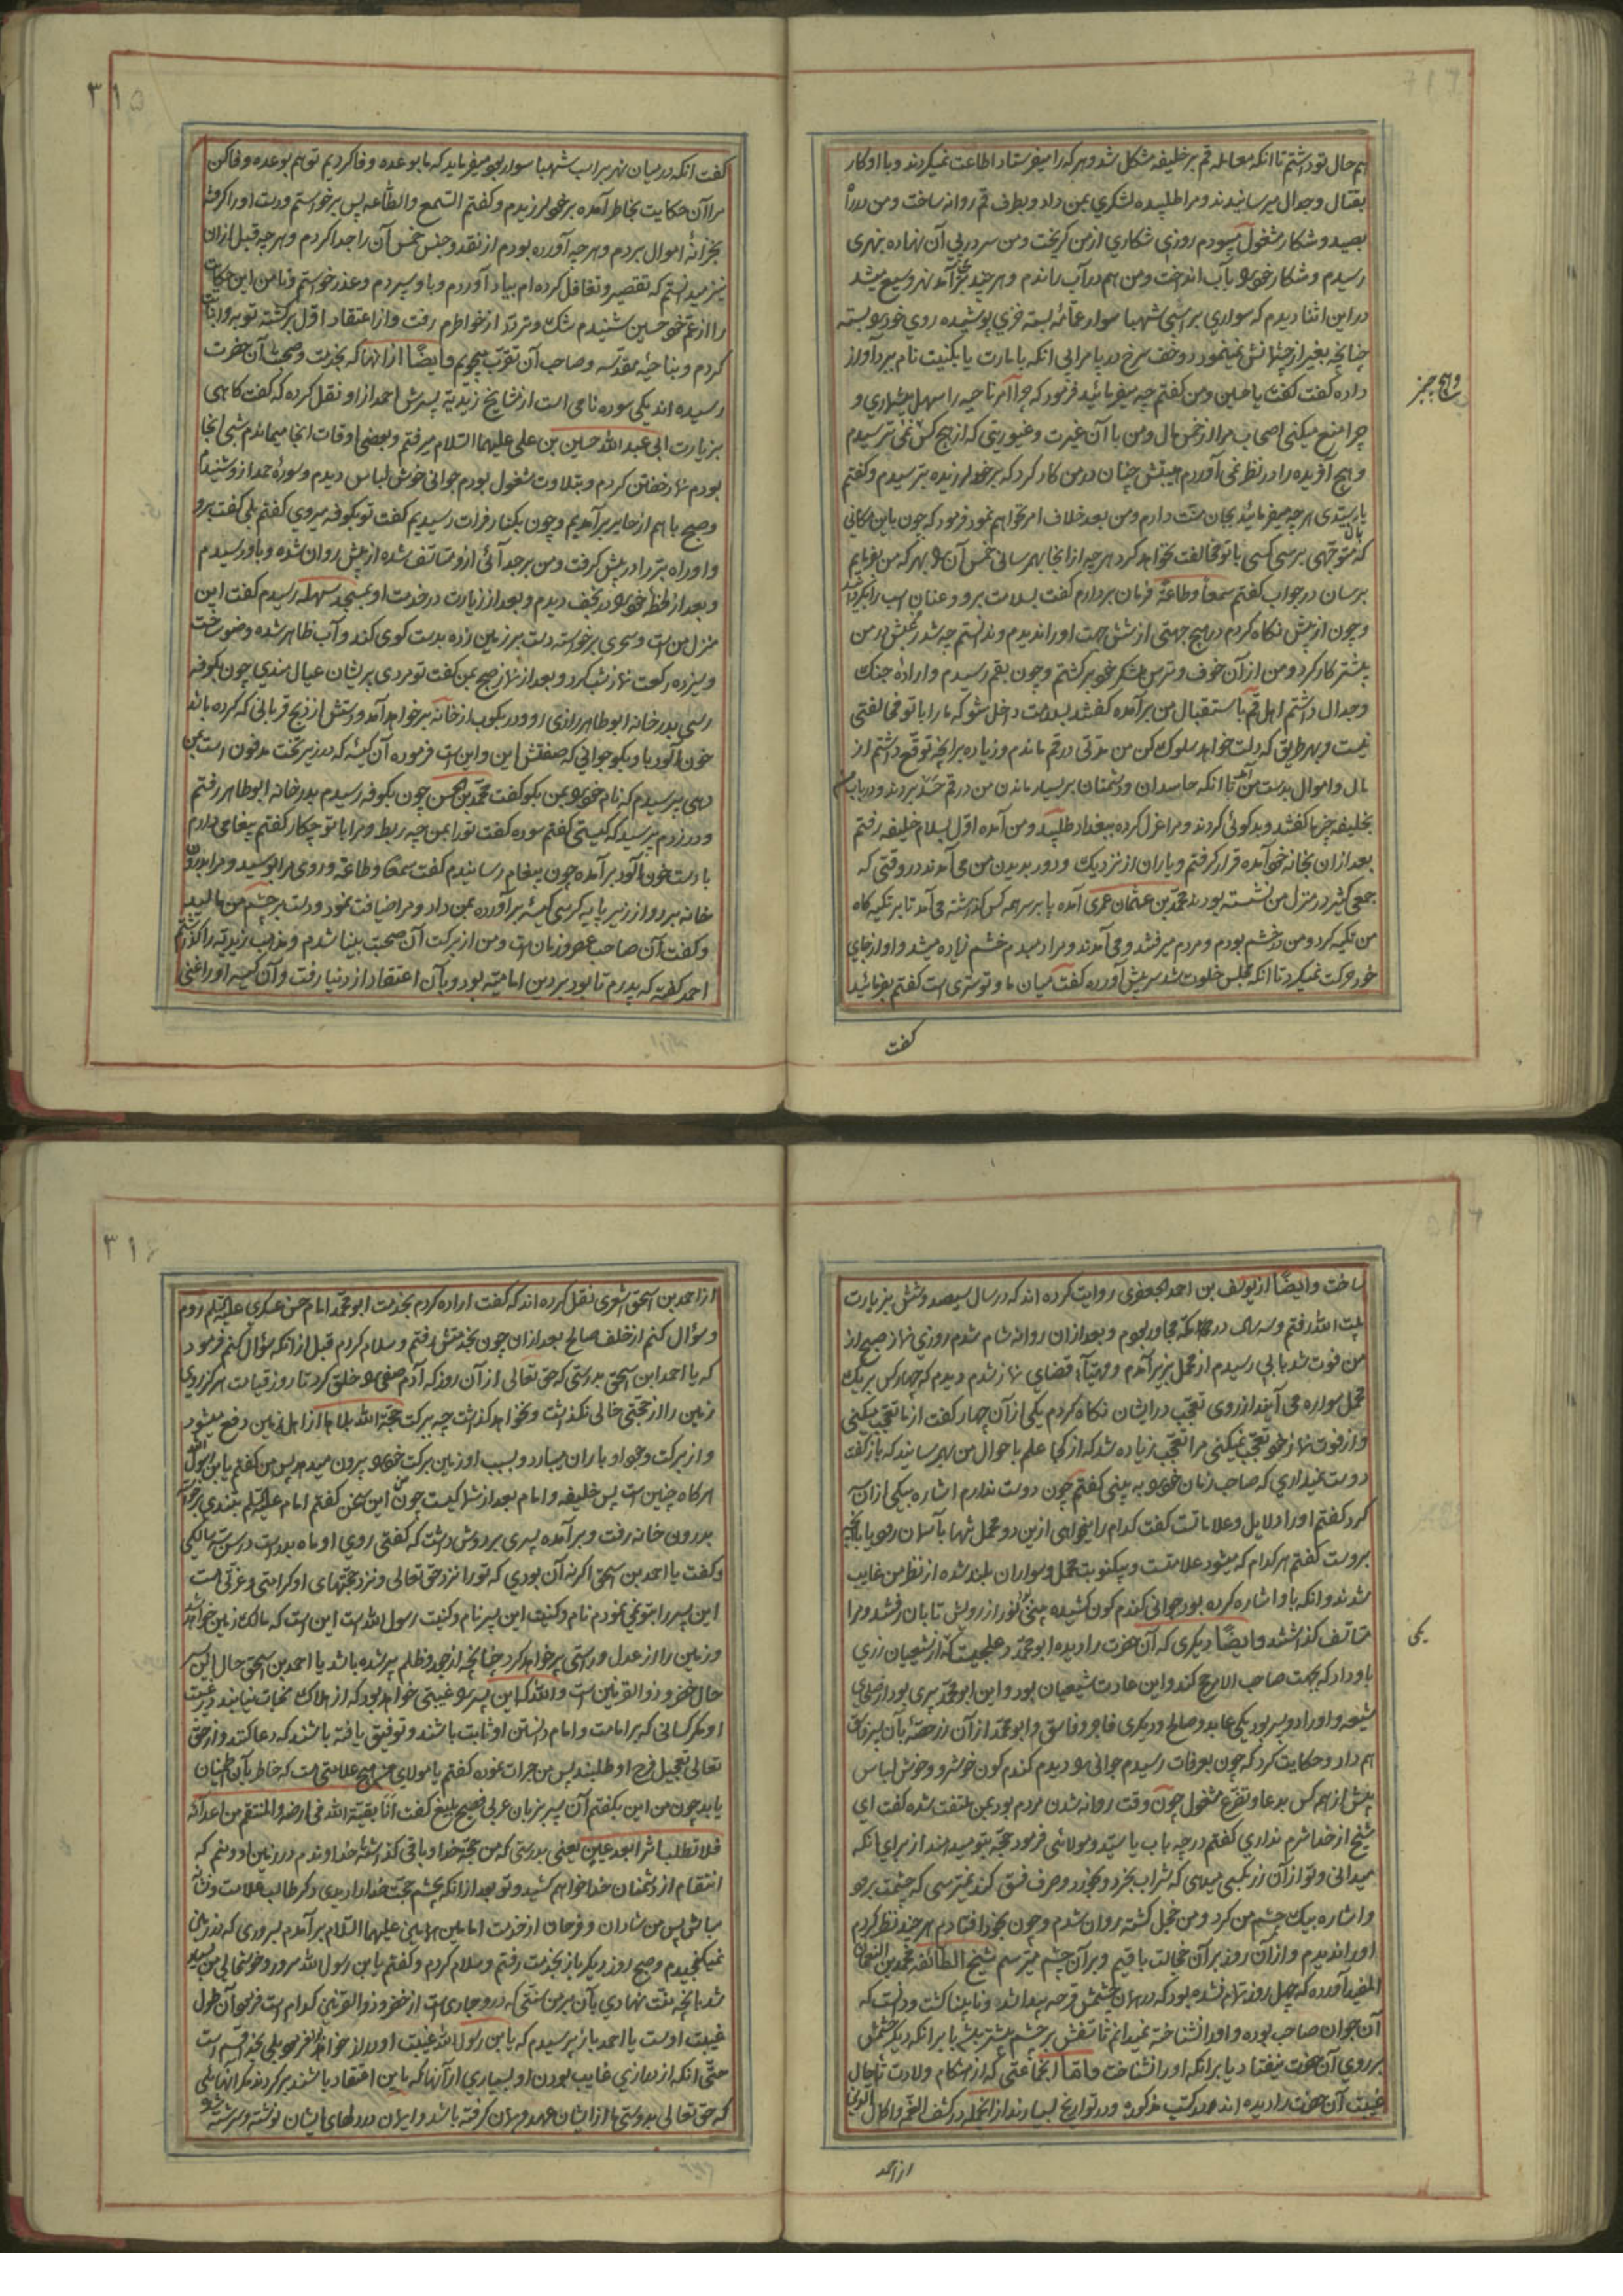 هم حال تو داشتم تا انکه معامله قم بر خلیفه مشکل شد و هر که را میفرستاد اطاعت نمیکردند و با او کار
بقتال و جدال میرسانیدند و مرا طلبیده لشکری بمن داد و بطرف قم روانه ساخت و من در راه
بصید و شکار مشغول میبودم روزی شکاری از من کریخت و من سر در پی آن نهاده بنهری
رسیدم و شکار خود را باب انداخت و من هم در آب راندم و هر چند بر آمد نهر وسیع میشد
در این اثنا دیدم که سواری بر اسبی شهبا سوار عمامه بسته خزی پوشیده روی خود را بسته
چنانچه بغیر از چشمانش نمینمود دو خف سرخ در پا مرا بی انکه بامارت یا بکنیت نام برد آواز
داده گفت یا حسین و من کفتم چه میفرمائید فرمود که چرا امر ناحیه را سهل میشماری و
چرا منع میکنی اصحاب مرا از خمس مال و من با آن غیرت و غیوریتی که از هیچ کس نمی ترسیدم
و هیچ افریده را در نظر نمی آوردم هیبتش چنان در من کار کرد که بر خود لرزیده بترسیدم و کفتم
یا سیدی هر چه میفرمائید بجان منت دارم و من بعد خلاف امر نخواهم نمود فرمود که چون باین مکانی
که متوجهی برسی کسی با تو مخالفت نخواهد کرد هر چه از انجا بهم رسانی خمس آن را بهر که من بفرمایم
برسان در جواب کفتم سمعا و طاعة فرمان بردارم کفت بسلامت برو و عنان اسب را بگردانید
و چون از پیش نکاه کردم در هیچ جهتی از شش جهت او را ندیدم و ندانستم چه شد رعبش در من
بیشتر کار کرد و من از آن خوف و ترس بلشکر خود بر کشتم و چون بقم رسیدم و اراده جنک
و جدال داشتم اهل قم باستقبال من بر آمده کفتند بسلامت داخل شو که ما را با تو مخالفتی
نیست و بهر طریق که دلت خواهد سلوک کن من مدتی در قم ماندم و زیاده بر آنچه توقع داشتم از
مال و اموال بدست من آمد تا انکه حاسدان و دشمنان بر بسیار ماندن من در قم حسد بردند و در باب من
بخلیفه چیزها کفتند و بد کوئی کردند و مرا عزل کرده ببغداد طلبید و من آمده اول بسلام خلیفه رفتم
بعد ازان بخانه خود آمده قرار کرفتم و یاران از نزدیک و دور بدیدن من می آمدند در وقتی که
جمعی کثیر در منزل من نشسته بودند محمد بن عثمان عمری آمده پا بر سر همه کس کذاشته می آمد تا بر تکیه کاه
من تکیه کرد و من در خشم بودم و مردم میرفتند و می آمدند و مرا دمبدم خشم زیاده میشد و او از جای
خود حرکت نمیکرد تا انکه مجلس خلوت شد سر پیش آورده کفت میان ما و تو سری است کفتم بفرمائید
کفت
۳۱۵
کفت انکه در میان نهر بر اسب شهبا سوار بود میفرماید که ما بوعده وفا کردیم تو هم بوعده وفا کن
مرا آن حکایت بخاطر آمده بر خود لرزیدم و کفتم السمع و الطاعه پس برخواستم و دست او را کرفته
بخزانه اموال بردم و هر چه آورده بودم از نقد و جنس خمس آن را جدا کردم و هر چه قبل از ان
نیز میدانستم که تقصیر و تغافل کرده ام بیاد آوردم و باو سپردم و عذر خواستم و تا من این حکایت
را از عم خود حسین شنیدم شک و تردد از خواطرم رفت و از اعتقاد اول بر کشته توبه و انابت
کردم و بناحیه مقدسه و صاحب آن تقرب میجویم و ایضا از انها که بخدمت و صحبت آن حضرت
رسیده اند یکی سوره نامی است از مشایخ زیدیه پسرش احمد از او نقل کرده که کفت کاهی
بزیارت ابی عبد الله حسین بن علی علیهما السلام میرفتم و بعضی اوقات انجا میماندم شبی انجا
بودم نماز خفتن کردم و بتلاوت مشغول بودم جوانی خوش لباس دیدم و سورهٔ حمد از و شنیدم
و صبح با هم از حایر بر آمدیم و چون بکنار فرات رسیدیم کفت تو بکوفه میروی کفتم بلی کفت برو
و او راه بر را در پیش کرفت و من بر جدائی از و متاسف شده از پیش روان شده و باو رسیدم
و بعد از لحظه خود را در نجف دیدم و بعد از زیارت در خدمت او بمسجد سهله رسیدم کفت این
منزل من است و سحری برخواسته دست بر زمین زده بدست کوی کند و آب ظاهر شده وضو ساخت
و سیزده رکعت نماز شب کرد و بعد از نماز صبح بمن کفت تو مردی پریشان عیال مندی چون بکوفه
رسی بدر خانه ابو طاهر رازی رو و در بکوب از خانه بر خواهد آمد و دستش از ذبح قربانی که کرده باشد
خون آلود باو بکو جوانی که صفتش این و این است فرموده آن کیسه که در زیر تخت مدفون است بمن
دهی پرسیدم که نام خود را بمن بکو کفت محمد بن الحسن چون بکوفه رسیدم بدر خانه ابو طاهر رفتم
و در زدم پرسید که کیستی کفتم سوره کفت تو را بمن چه ربط و مرا با تو چکار کفتم پیغامی دارم
با دست خون آلود بر آمده چون پیغام رسانیدم کفت سمعا و طاعة و روی مرا بوسید و مرا بدرون
خانه برد و از زیر پایه کرسی کیسهٔ بر آورده بمن داد و مرا ضیافت نمود و دست بر چشم من مالید
و کفت آن صاحب عصر و زمان است و من از برکت آن صحبت بینا شدم و مذهب زیدیه را گذاشتم
احمد کفته که پدرم تا بود بر دین امامیه بود و بآن اعتقاد از دنیا رفت و آن کیسه او را غنی
ساخت و ایضا از یوسف بن احمد الجعفری روایت کرده اند که در سال سیصد و شش بزیارت
بیت الله رفتم و سه سال در مکه مجاور بودم و بعد از ان روانه شام شدم روزی نماز صبح از
من فوت شد بآبی رسیدم از محمل بزیر آمدم و مهیای قضای نماز شدم دیدم که چهار کس بر یک
محمل سواره می آیند از روی تعجب در ایشان نکاه کردم یکی از آن چهار کفت از ما تعجب میکنی
و از فوت نماز خود تعجب نمیکنی مرا تعجب زیاده شد که از کجا علم باحوال من بهم رسانید که باز کفت
دوست میداری که صاحب زمان خود را به بینی کفتم چون دوست ندارم اشاره بیکی از ان
کرد کفتم او را دلایل و علاماتست کفت کدام را میخواهی ازین دو محمل تنها بآسمان رود یا با آنچه
بروست کفتم هر کدام که میشود علامتست و بیکنوبت محمل و سواران بلند شده از نظر من غایب
شدند و انکه باو اشاره کرده بود جوانی کندم کون کشیده بینی نور از رویش تابان رفتند و مرا
متاسف کذاشتند و ایضا دیکری که آن حضرت را دیده ابو محمد دعلجیست که از شیعیان زری
باو داد که بجهت صاحب الامر حج کند و این عادت شیعیان بود و این ابو محمد پیری بود از صلحای
شیعه و او را دو پسر بود یکی عابد و صالح و دیکری فاجر و فاسق و ابو محمد از آن زر حصه بآن پسر فاسق
هم داد و حکایت کرد که چون بعرفات رسیدم جوانی را دیدم کندم کون خوشرو و خوش لباس
بیش از همه کس بدعا و تضرع مشغول چون وقت روانه شدن مردم بود بمن ملتفت شده کفت ای
شیخ از خدا شرم نداری کفتم در چه باب یا سیدی و مولائی فرمود حجه بتو میدهند از برای انکه
میدانی و تو از آن زر بکسی میدهی که شراب بخرد و بخورد و صرف فسق کند نمیترسی که چشمت برود
و اشاره بیک چشم من کرد و من خجل کشته روان شدم و چون بخود افتادم هر چند نظر کردم
او را ندیدم و از آن روز بر آن خجالت باقیم و بر آن چشم میترسم شیخ الطائفه محمد بن النعمان
المفید آورده که چهل روز تمام نشده بود که در همان چشمش قرحه پیدا شد و نابینا کشت و دانست که
آن جوان صاحب بوده و او را نشناخته نمیدانم تاسفش بر چشم بیشتر باشد یا بر انکه دیکر چشمش
بر روی آن حضرت نیفتاد یا بر انکه او را نشناخت و اما انجماعتی که از هنکام ولادت تا حال
غیبت آن حضرت را دیده اند در کتب مذکوره و در تواریخ بسیارند از انجمله در کشف الغمه و اکمال الدین
یکی
از احمد
۳۱۶
از احمد بن اسحق اشعری نقل کرده اند که کفت اراده کردم بخدمت ابو محمد امام حسن عسکری علیه السلام روم
و سؤال کنم از خلف صالح بعد ازان چون بخدمتش رفتم و سلام کردم قبل از انکه سؤال کنم فرمود
که یا احمد ابن اسحق بدرستی که حق تعالی از آن روز که آدم صفی را خلق کرد تا روز قیامت هرکز روی
زمین را از حجتی خالی نکذاشت و نخواهد کذاشت چه ببرکت حجة الله بلاها از اهل زمین دفع میشود
و از برکت وجود او باران میبارد و بسبب او زمین برکت خود را بیرون میدهد پس من کفتم یا بن رسول الله
هر کاه چنین است پس خلیفه و امام بعد از شما کیست چون من این سخن کفتم امام علیه السلام بتندی برخواسته
بدرون خانه رفت و بر آمده پسری بر دوش داشت که کفتی روی او ماه بدر است در سن سه سالکی
و کفت یا احمد بن اسحق اکر نه آن بودی که تو را نزد حق تعالی و نزد حجتهای او کرامتی و عزتی هست
این پسر را بتو نمی نمودم نام و کنیت این پسر نام و کنیت رسول الله است این است که مالک زمین خواهد شد
و زمین را از عدل و راستی پر خواهد کرد چنانچه از جور و ظلم پر شده باشد یا احمد بن اسحق حال این پسر
حال خضر و ذو القرنین است و الله که این پسر را غیبتی خواهد بود که از هلاک نجات نیابند در غیبت
او مکر کسانی که بر امامت و امام دانستن او ثابت باشند و توفیق یافته باشند که دعا کنند و از حق
تعالی تعجیل فرج او طلبند پس من جرات نموده کفتم یا مولای هیچ علامتی هست که خاطر بآن اطمینان
یابد چون من این بکفتم آن پسر بزبان عربی فصیح بلیغ کفت انا بقیة الله فی ارضه و المنتقم من اعدائه
فلا تطلب اثرا بعد عین یعنی بدرستی که من حجة خدا و باقی کذاشتهٔ خداوندم در زمین او و منم که
انتقام از دشمنان خدا خواهم کشید و تو بعد از انکه بچشم حجت خدا را دیدی دکر طالب علامت و نشان
مباش پس من شادان و فرحان از خدمت امامین همامین علیهما السلام بر آمدم بسروری که در زمین
نمیکنجیدم و صبح روز دیکر باز بخدمت رفتم و سلام کردم و کفتم یا بن رسول الله سرور و خوشحالی من زیاد
شد بآنچه منت نهادی بآن بر من سنتی که درو جاری است از خضر و ذو القرنین کدام است فرمود آن طول
غیبت اوست یا احمد باز پرسیدم که یا بن رسول الله غیبت او دراز خواهد بود فرمود بلی بخدا قسم است
حتی انکه از درازی غایب بودن او بسیاری از آنها که باین اعتقاد باشند بر کردند مکر انهائی
که حق تعالی بدوستی ما از ایشان عهد و پیمان کرفته باشد و ایمان در دلهای ایشان نوشته و سرشته